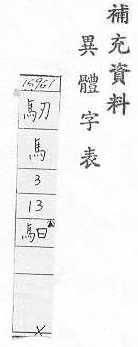 補充資料
異體字表
15961
馬刃
馬
3
13
馹
X